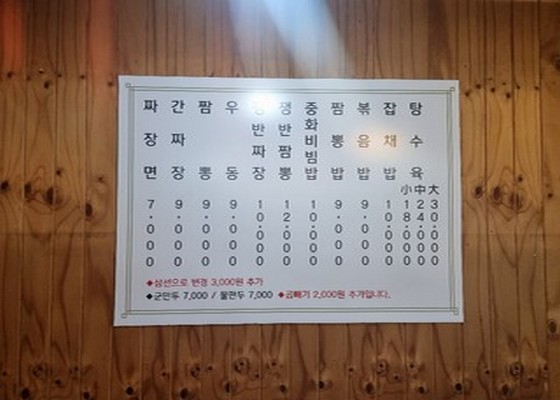 짜장면 7.000
간짜장 9.000
짬뽕 9.000
우동 9.000
쟁반짜장 10.000
쟁반짬뽕 12.000
중화비빔밥 10.000
짬뽕밥 9.000
볶음밥 9.000
잡채밥 10.000
탕수육 小 18.000 中 24.000 大 30.000
◆삼선으로 변경 3,000원 추가
◆군만두 7,000 / 물만두 7,000 ◆곱빼기 2,000원 추가입니다.